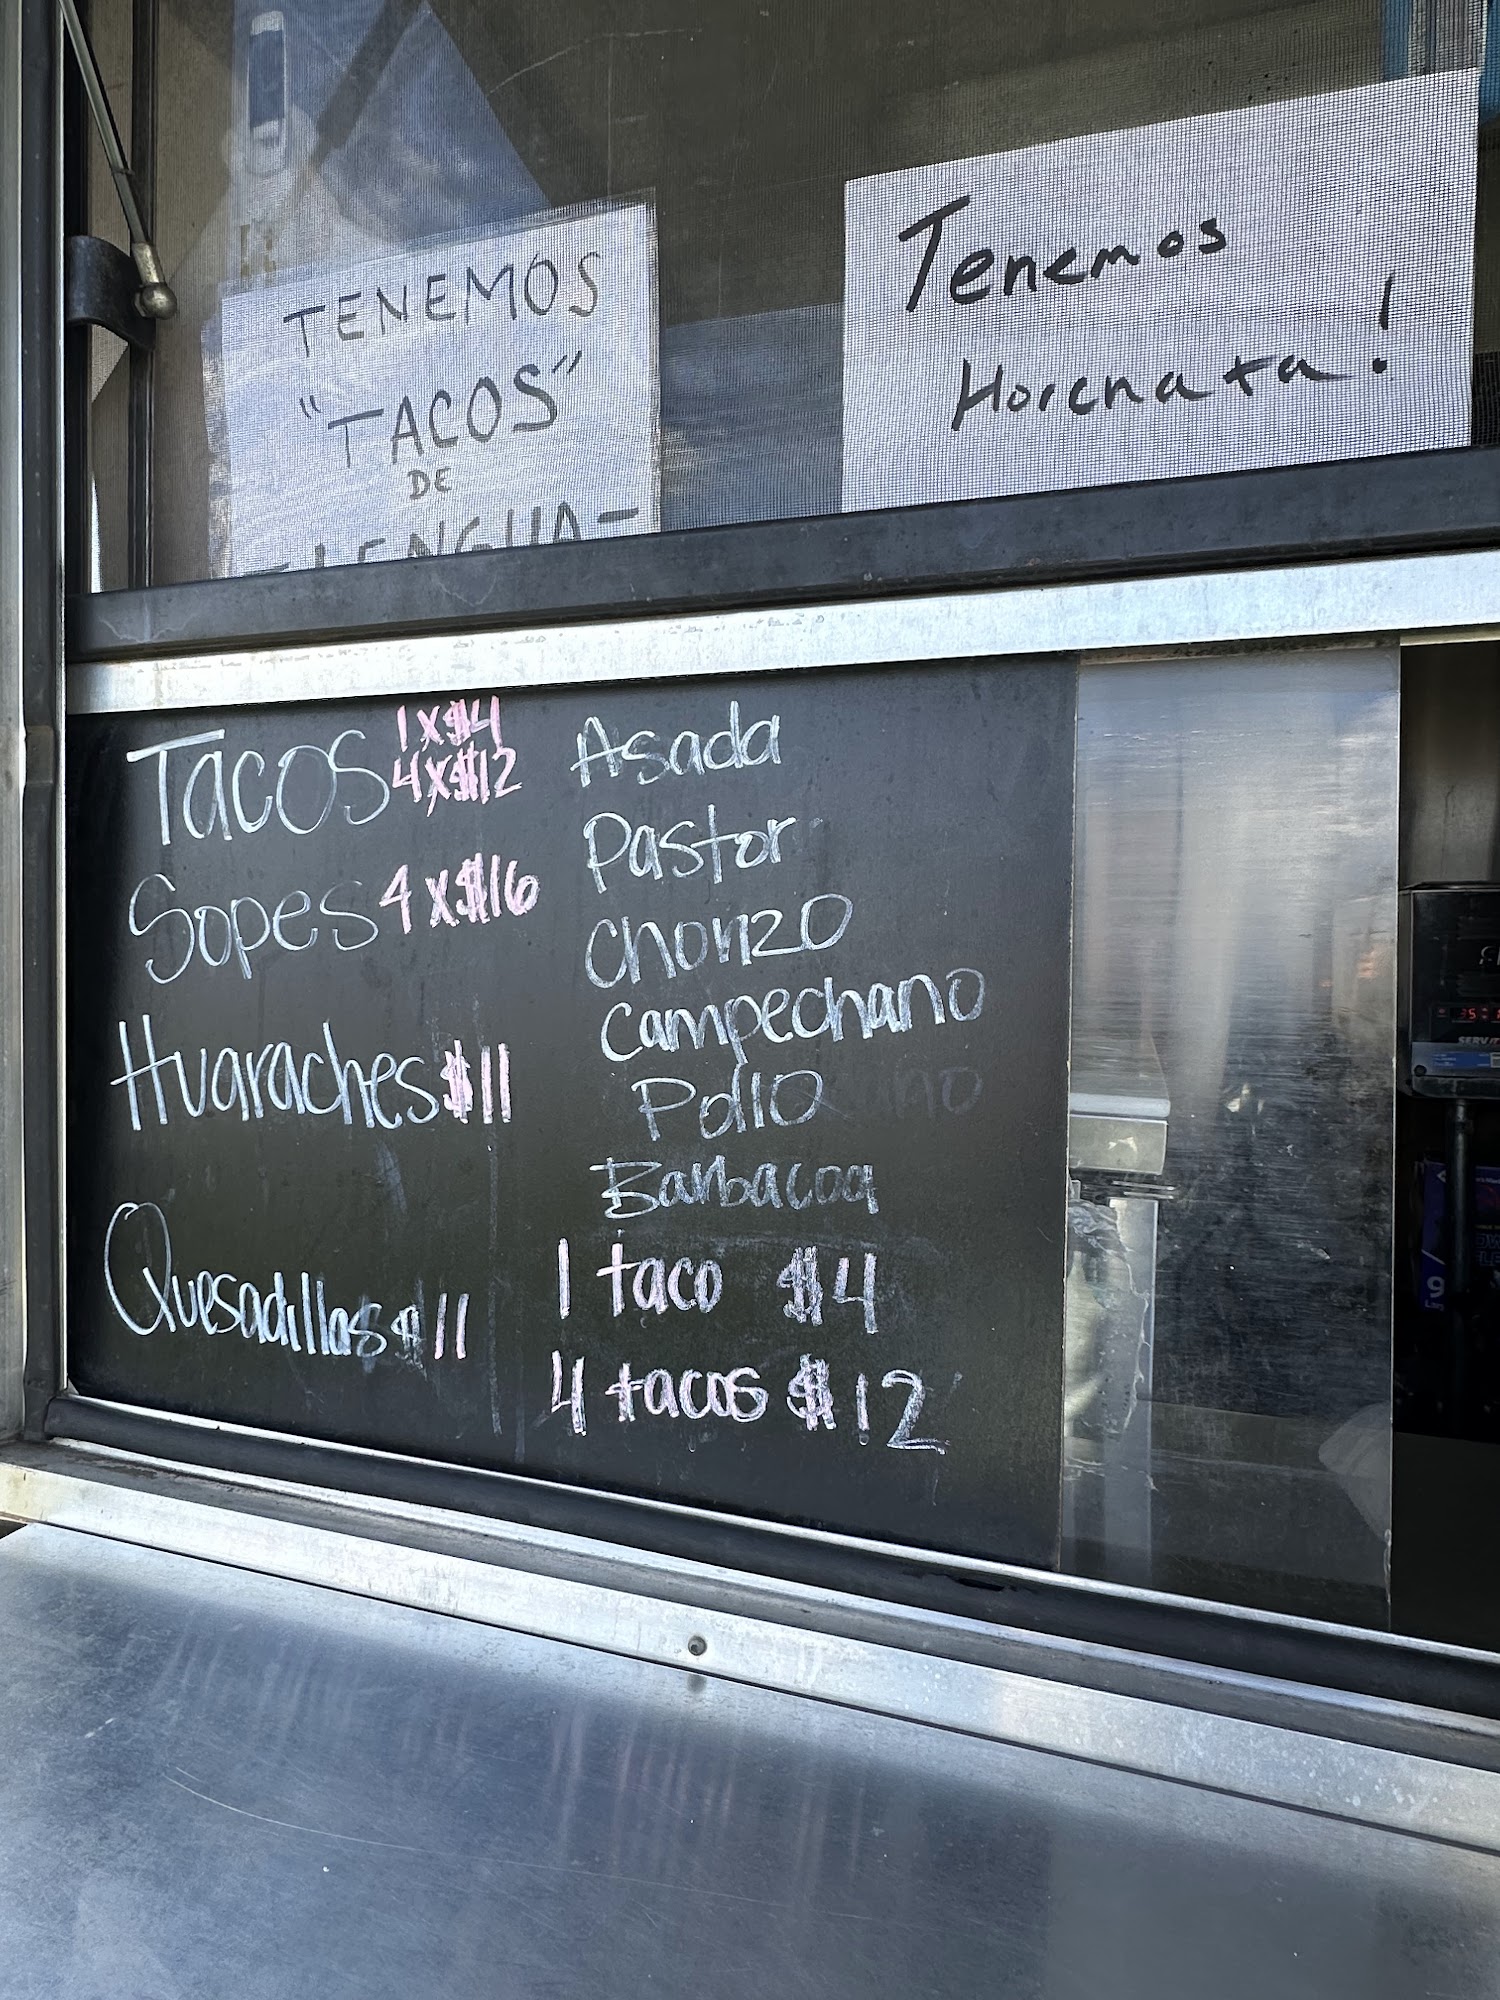 TENEMOS
"TACOS"
DE
-LENGUA-
Tenemos
Horchata!
Tacos 1x$4
4x$12
Sopes 4x$16
Huaraches $11
Quesadillas $11
Asada
Pastor
Chorizo
Campechano
Pollo
Barbacoa
1 taco $4
4 tacos $12